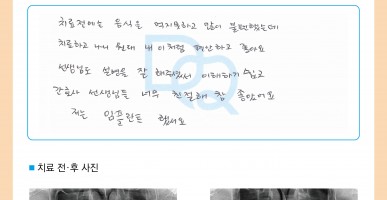 치료전에는 음식을 억지로하고 많이 불편했는데
치료하고 나니 원래 내 이처럼 편안하고 좋아요
선생님도 설명을 잘 해주셔서 이해하기 쉽고
간호사 선생님들 너무 친절해 참 좋았어요
저는 임플란트 했어요
치료 전·후 사진